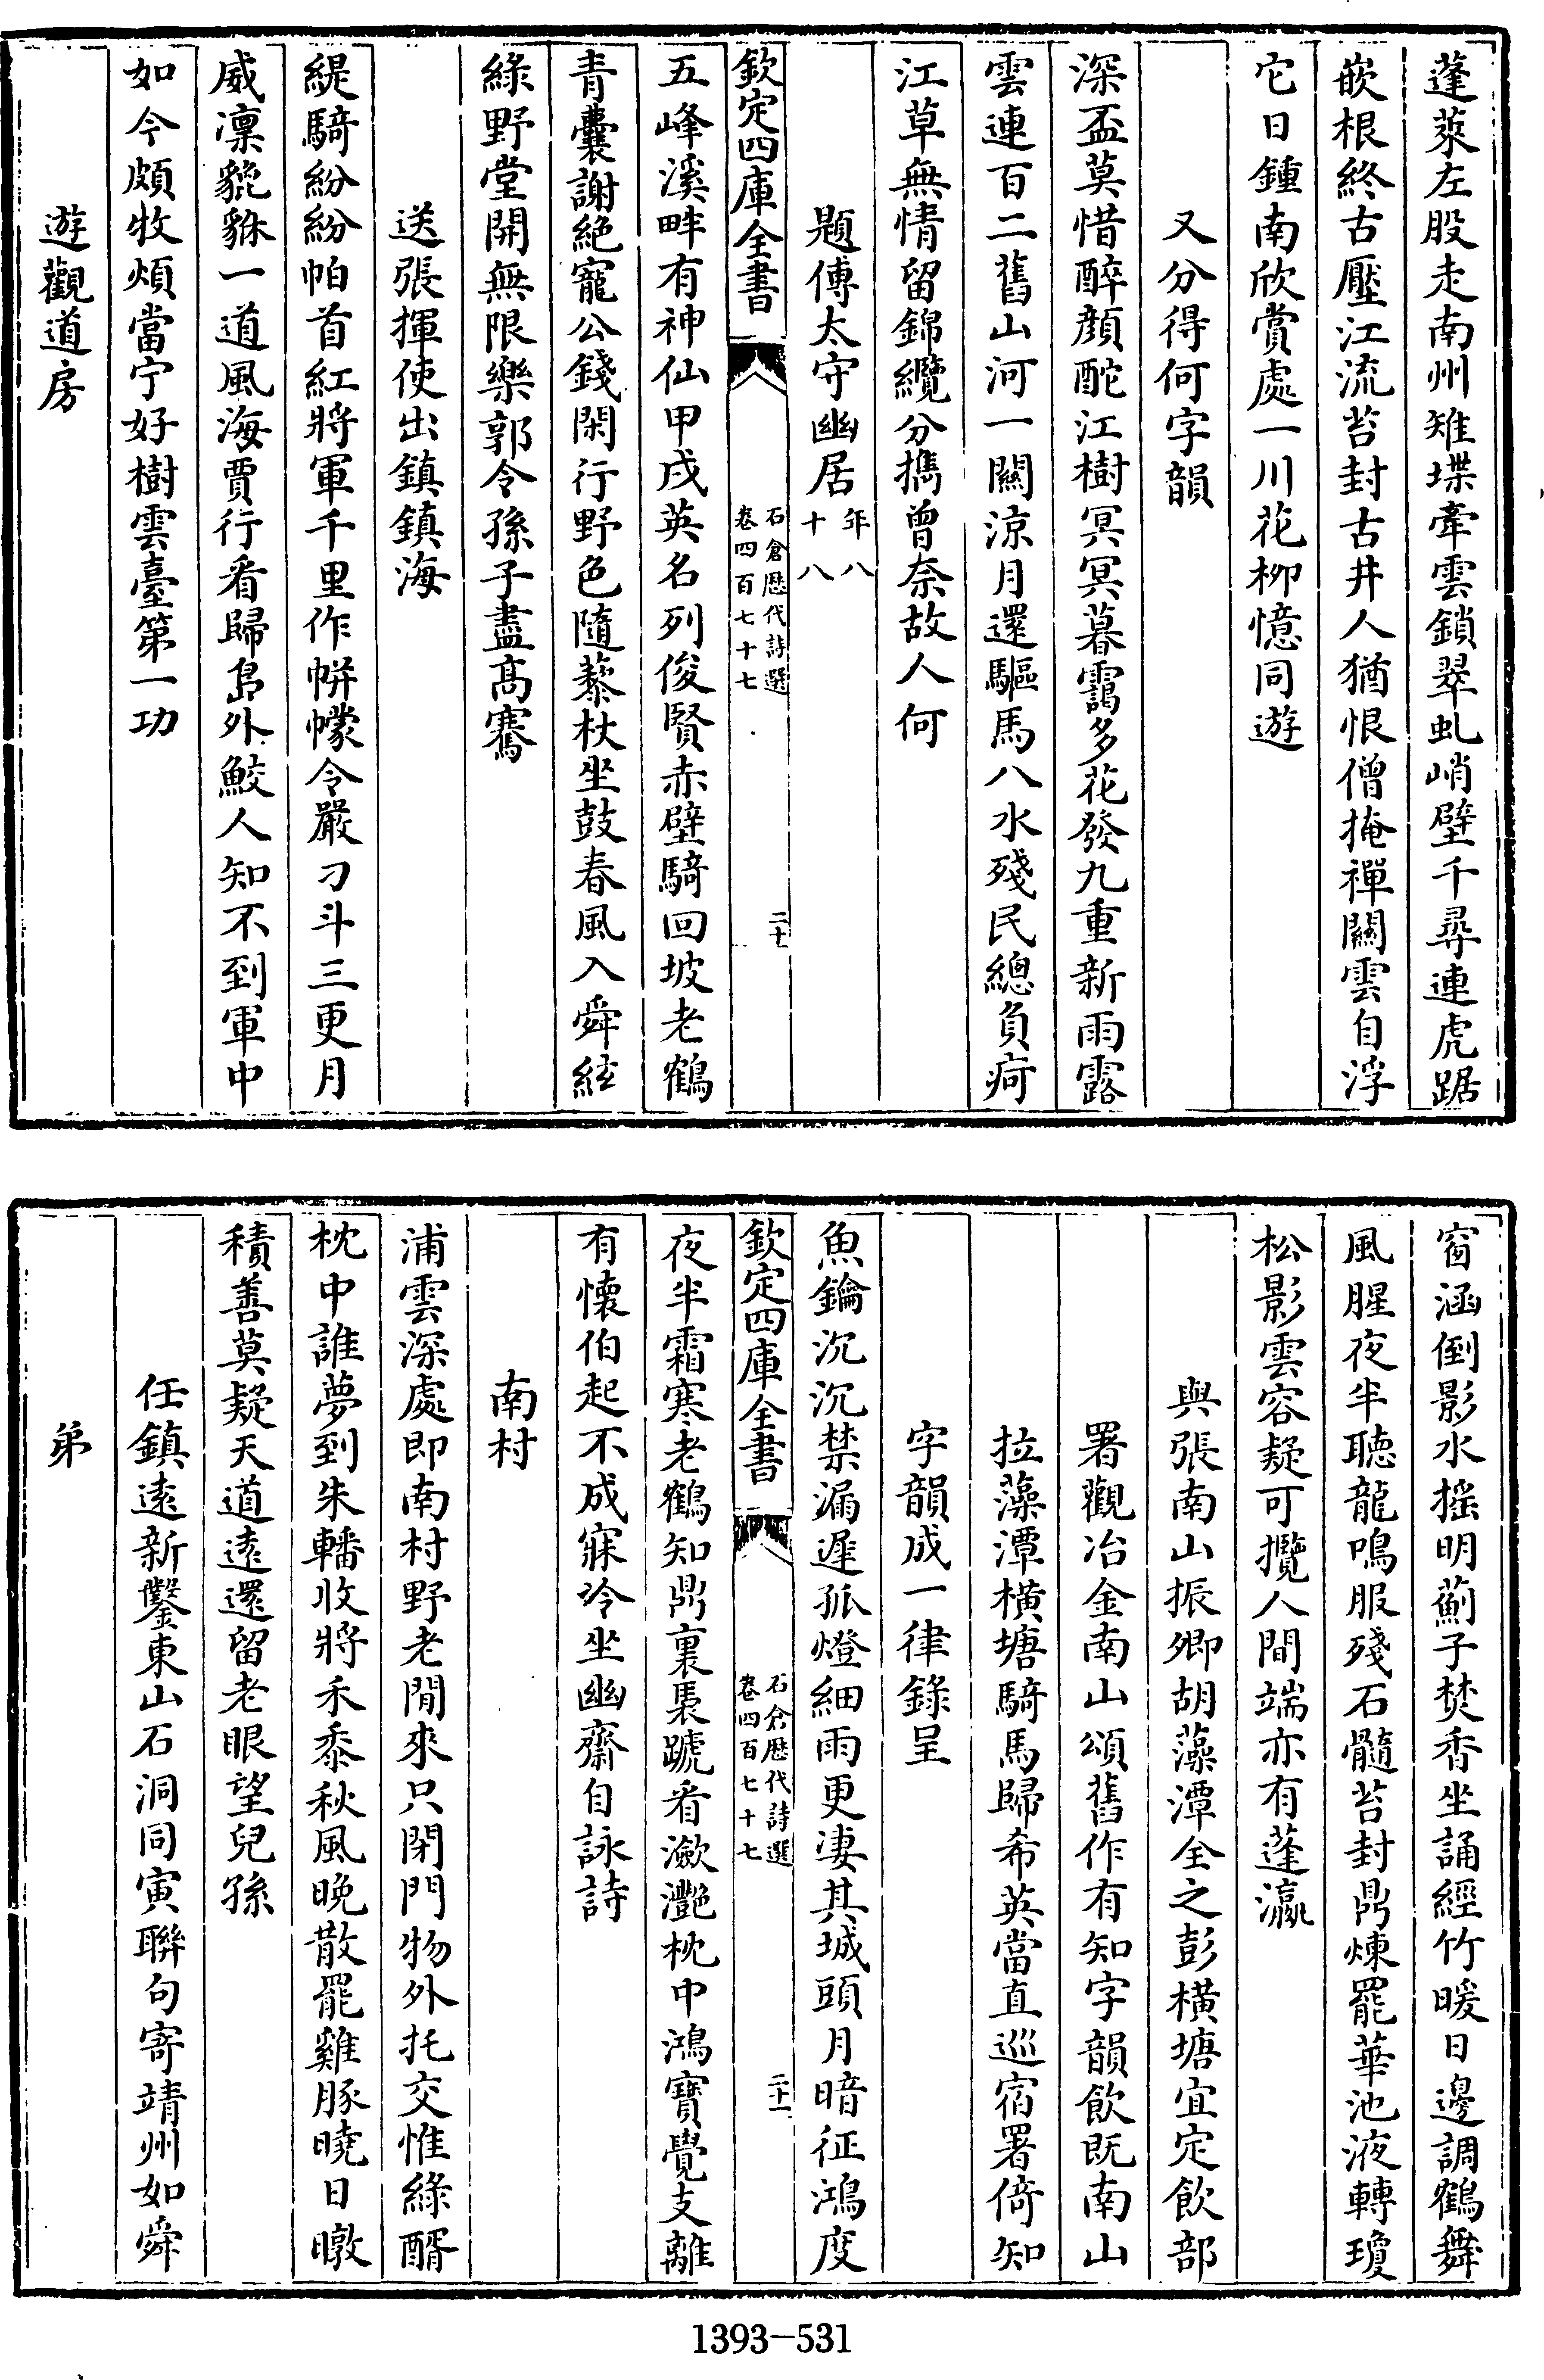 蓬萊左股走南州雉堞牽雲鎖翠虬峭壁千尋連虎踞
嵌根終古壓江流苔封古井人猶恨僧掩禪關雲自浮
它日鍾南欣賞處一川花柳憶同遊
又分得何字韻
深盃莫惜醉顔酡江樹冥冥暮靄多花發九重新雨露
雲連百二舊山河一關涼月還驅馬八水殘民總負疴
江草無情留錦纜分攜曾奈故人何
題傅太守幽居年八十八
欽定四庫全書
石倉歴代詩選
卷四百七十七
二十
五峰溪畔有神仙甲戌英名列俊賢赤壁騎回坡老鶴
青囊謝絶寵公錢閑行野色隨藜杖坐鼓春風入舜絃
綠野堂開無限樂郭令孫子盡髙騫
送張揮使出鎮鎮海
緹騎紛紛帕首紅將軍千里作帡幪令嚴刁斗三更月
威凛貔貅一道風海賈行看歸島外鮫人知不到軍中
如今頗牧煩當宁好樹雲臺第一功
遊觀道房
窗涵倒影水摇明薊子焚香坐誦經竹暖日邊調鶴舞
風腥夜半聴龍鳴服殘石髓苔封鼎煉罷華池液轉瓊
松影雲容疑可攬人間端亦有蓬瀛
與張南山振卿胡藻潭全之彭横塘宜定飲部
署觀冶金南山頌舊作有知字韻飲既南山
拉藻潭横塘騎馬歸希英當直巡宿署倚知
字韻成一律錄呈
魚鑰沉沉禁漏遲孤燈細雨更凄其城頭月暗征鴻度
欽定四庫全書
石倉歴代詩選
卷四百七十七
二十一
夜半霜寒老鶴知鼎裏裊蹏看瀲灧枕中鴻寶覺支離
有懷伯起不成寐冷坐幽齋自詠詩
南村
浦雲深處即南村野老閒來只閉門物外托交惟綠醑
枕中誰夢到朱轓收將禾黍秋風晚散罷雞豚曉日暾
積善莫疑天道遠還留老眼望兒孫
任鎮遠新鑿東山石洞同寅聯句寄靖州如舜
弟
1393-531